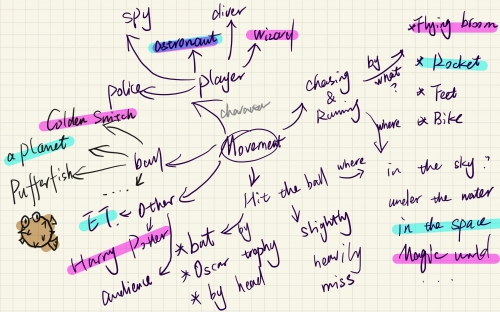 spy
diver
*Flying broom
Astronaut
Wizard
by
what
?
* Rocket
police
player
chasing
&
Running
* Feet
Golden Snitch
character
where
* Bike
a planet
ball
Movement
Pufferfish
where
in the sky?
.....
Hit the ball
under the water
ET.
Other
by
slightly
in the space
Harry Potter
* bat
heavily
Magic world
* Oscar trophy
audience
* by head
miss
....